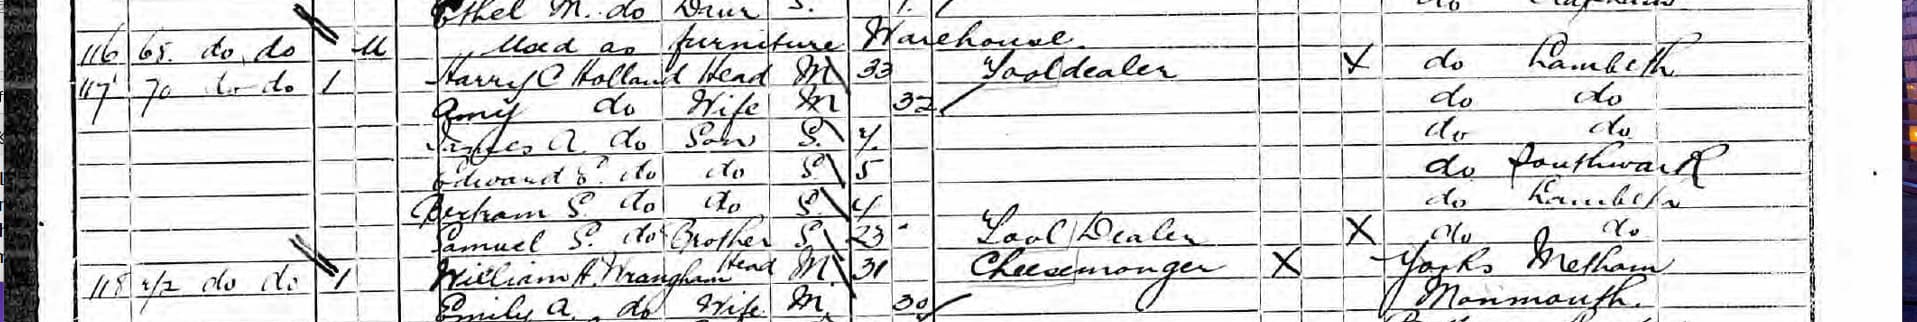 Ethel M. do Daur S. 1. do Clapham
116 68. do do U Used as furniture Warehouse.
117 70 do do 1 Harry C Holland Head M 33 Tool dealer X do Lambeth
Amy do Wife M 32 do do
James A. do Son S. 7. do do
Edward E. do do S 5 do Southwark
Bertram S. do do S. 4 do Lambeth
Samuel S. do Brother S 23 Tool Dealer X do do
118 72 do do 1 William H. Wrangham Head M. 31 Cheesemonger X Yorks Metham
Emily A. do Wife M. 30 Monmouth.